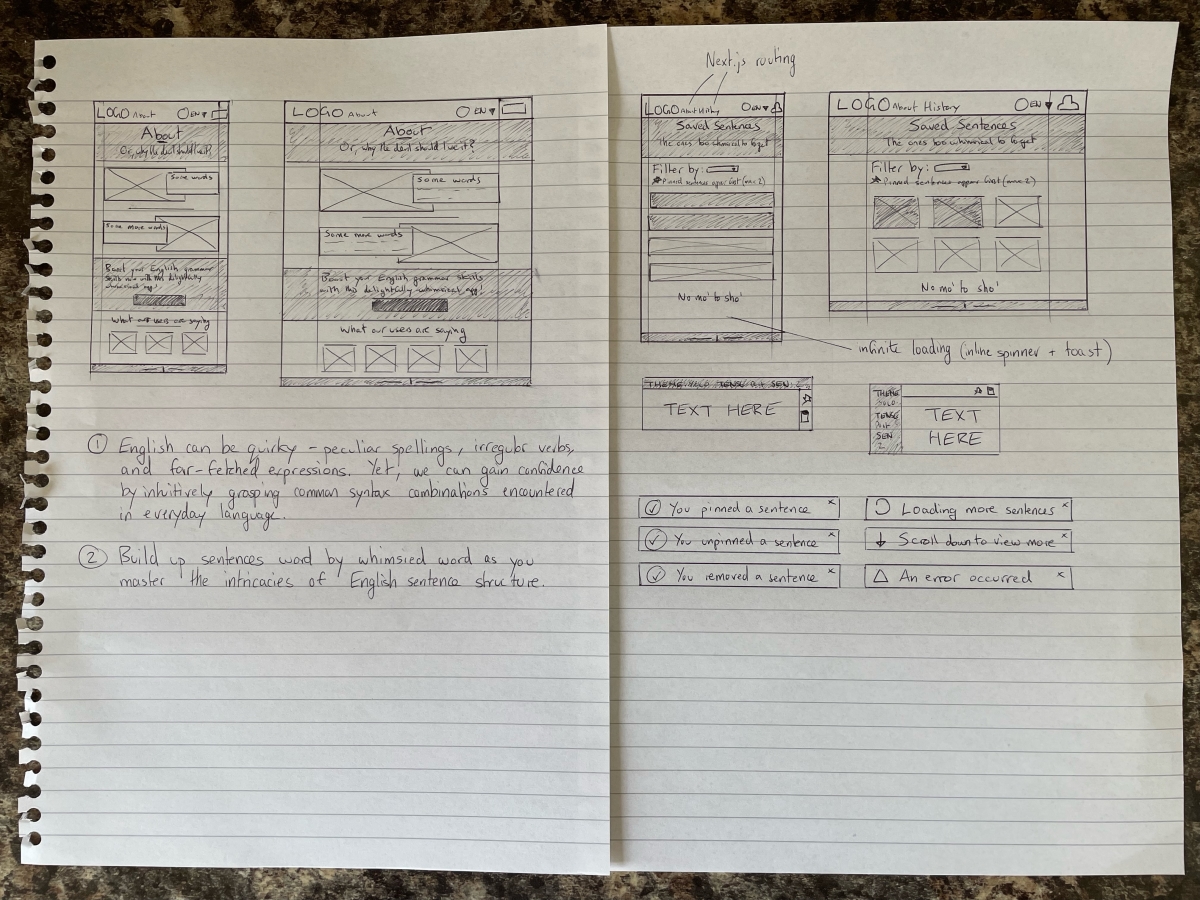 LOGO About EN
About
Or, why the devil should I use it?
Some words
Some more words
Boost your English grammar
skills now with this delightfully
whimsical app!
What our users are saying
LOGO About EN
About
Or, why the devil should I use it?
Some words
Some more words
Boost your English grammar skills
with this delightfully whimsical app!
What our users are saying
① English can be quirky – peculiar spellings, irregular verbs,
and far-fetched expressions. Yet, we can gain confidence
by intuitively grasping common syntax combinations encountered
in everyday language.
② Build up sentences word by whimsical word as you
master the intricacies of English sentence structure.
Next.js routing
LOGO About History EN
Saved Sentences
The ones too whimsical to forget
Filter by:
Pinned sentences appear first (max 2)
No mo' to sho'
LOGO About History EN
Saved Sentences
The ones too whimsical to forget
Filter by:
Pinned sentences appear first (max 2)
No mo' to sho'
infinite loading (inline spinner + toast)
THEME TENSE SEN
TEXT HERE
THEME
TENSE
SEN
2
TEXT
HERE
You pinned a sentence ×
You unpinned a sentence ×
You removed a sentence ×
Loading more sentences ×
Scroll down to view more ×
An error occurred ×